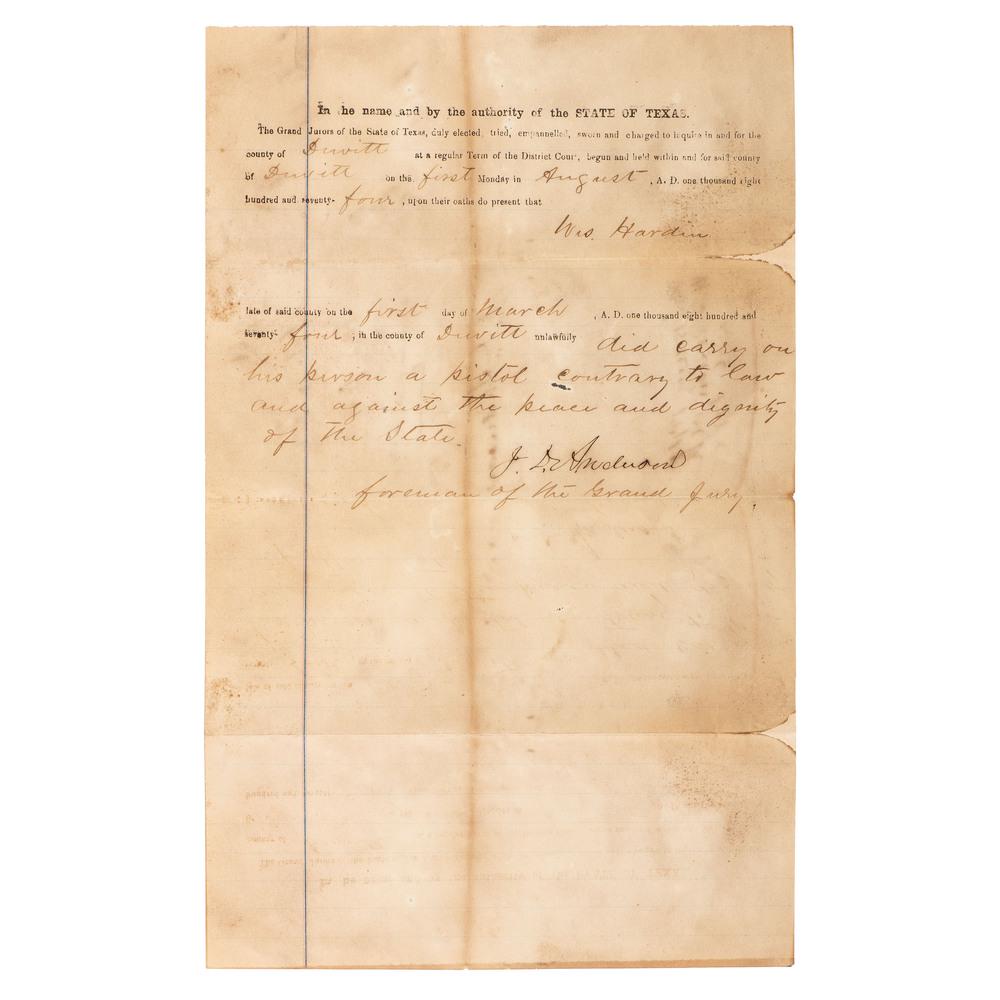 In he name and by the authority of the STATE OF TEXAS.
The Grand Jurors of the State of Texas, duly elected, tried, empannelled, sworn and charged to inquire in and for the
county of Dewitt at a regular Term of the District Court, begun and held within and for said county
of Dewitt on the first Monday in August, A. D. one thousand eight
hundred and seventy- four, upon their oaths do present that
Wes. Hardin
late of said county on the first day of March, A. D. one thousand eight hundred and
seventy- four, in the county of Dewitt unlawfully did carry on
his person a pistol contrary to law
and against the peace and dignity
of the State.
J. D. Anderson
foreman of the Grand Jury.